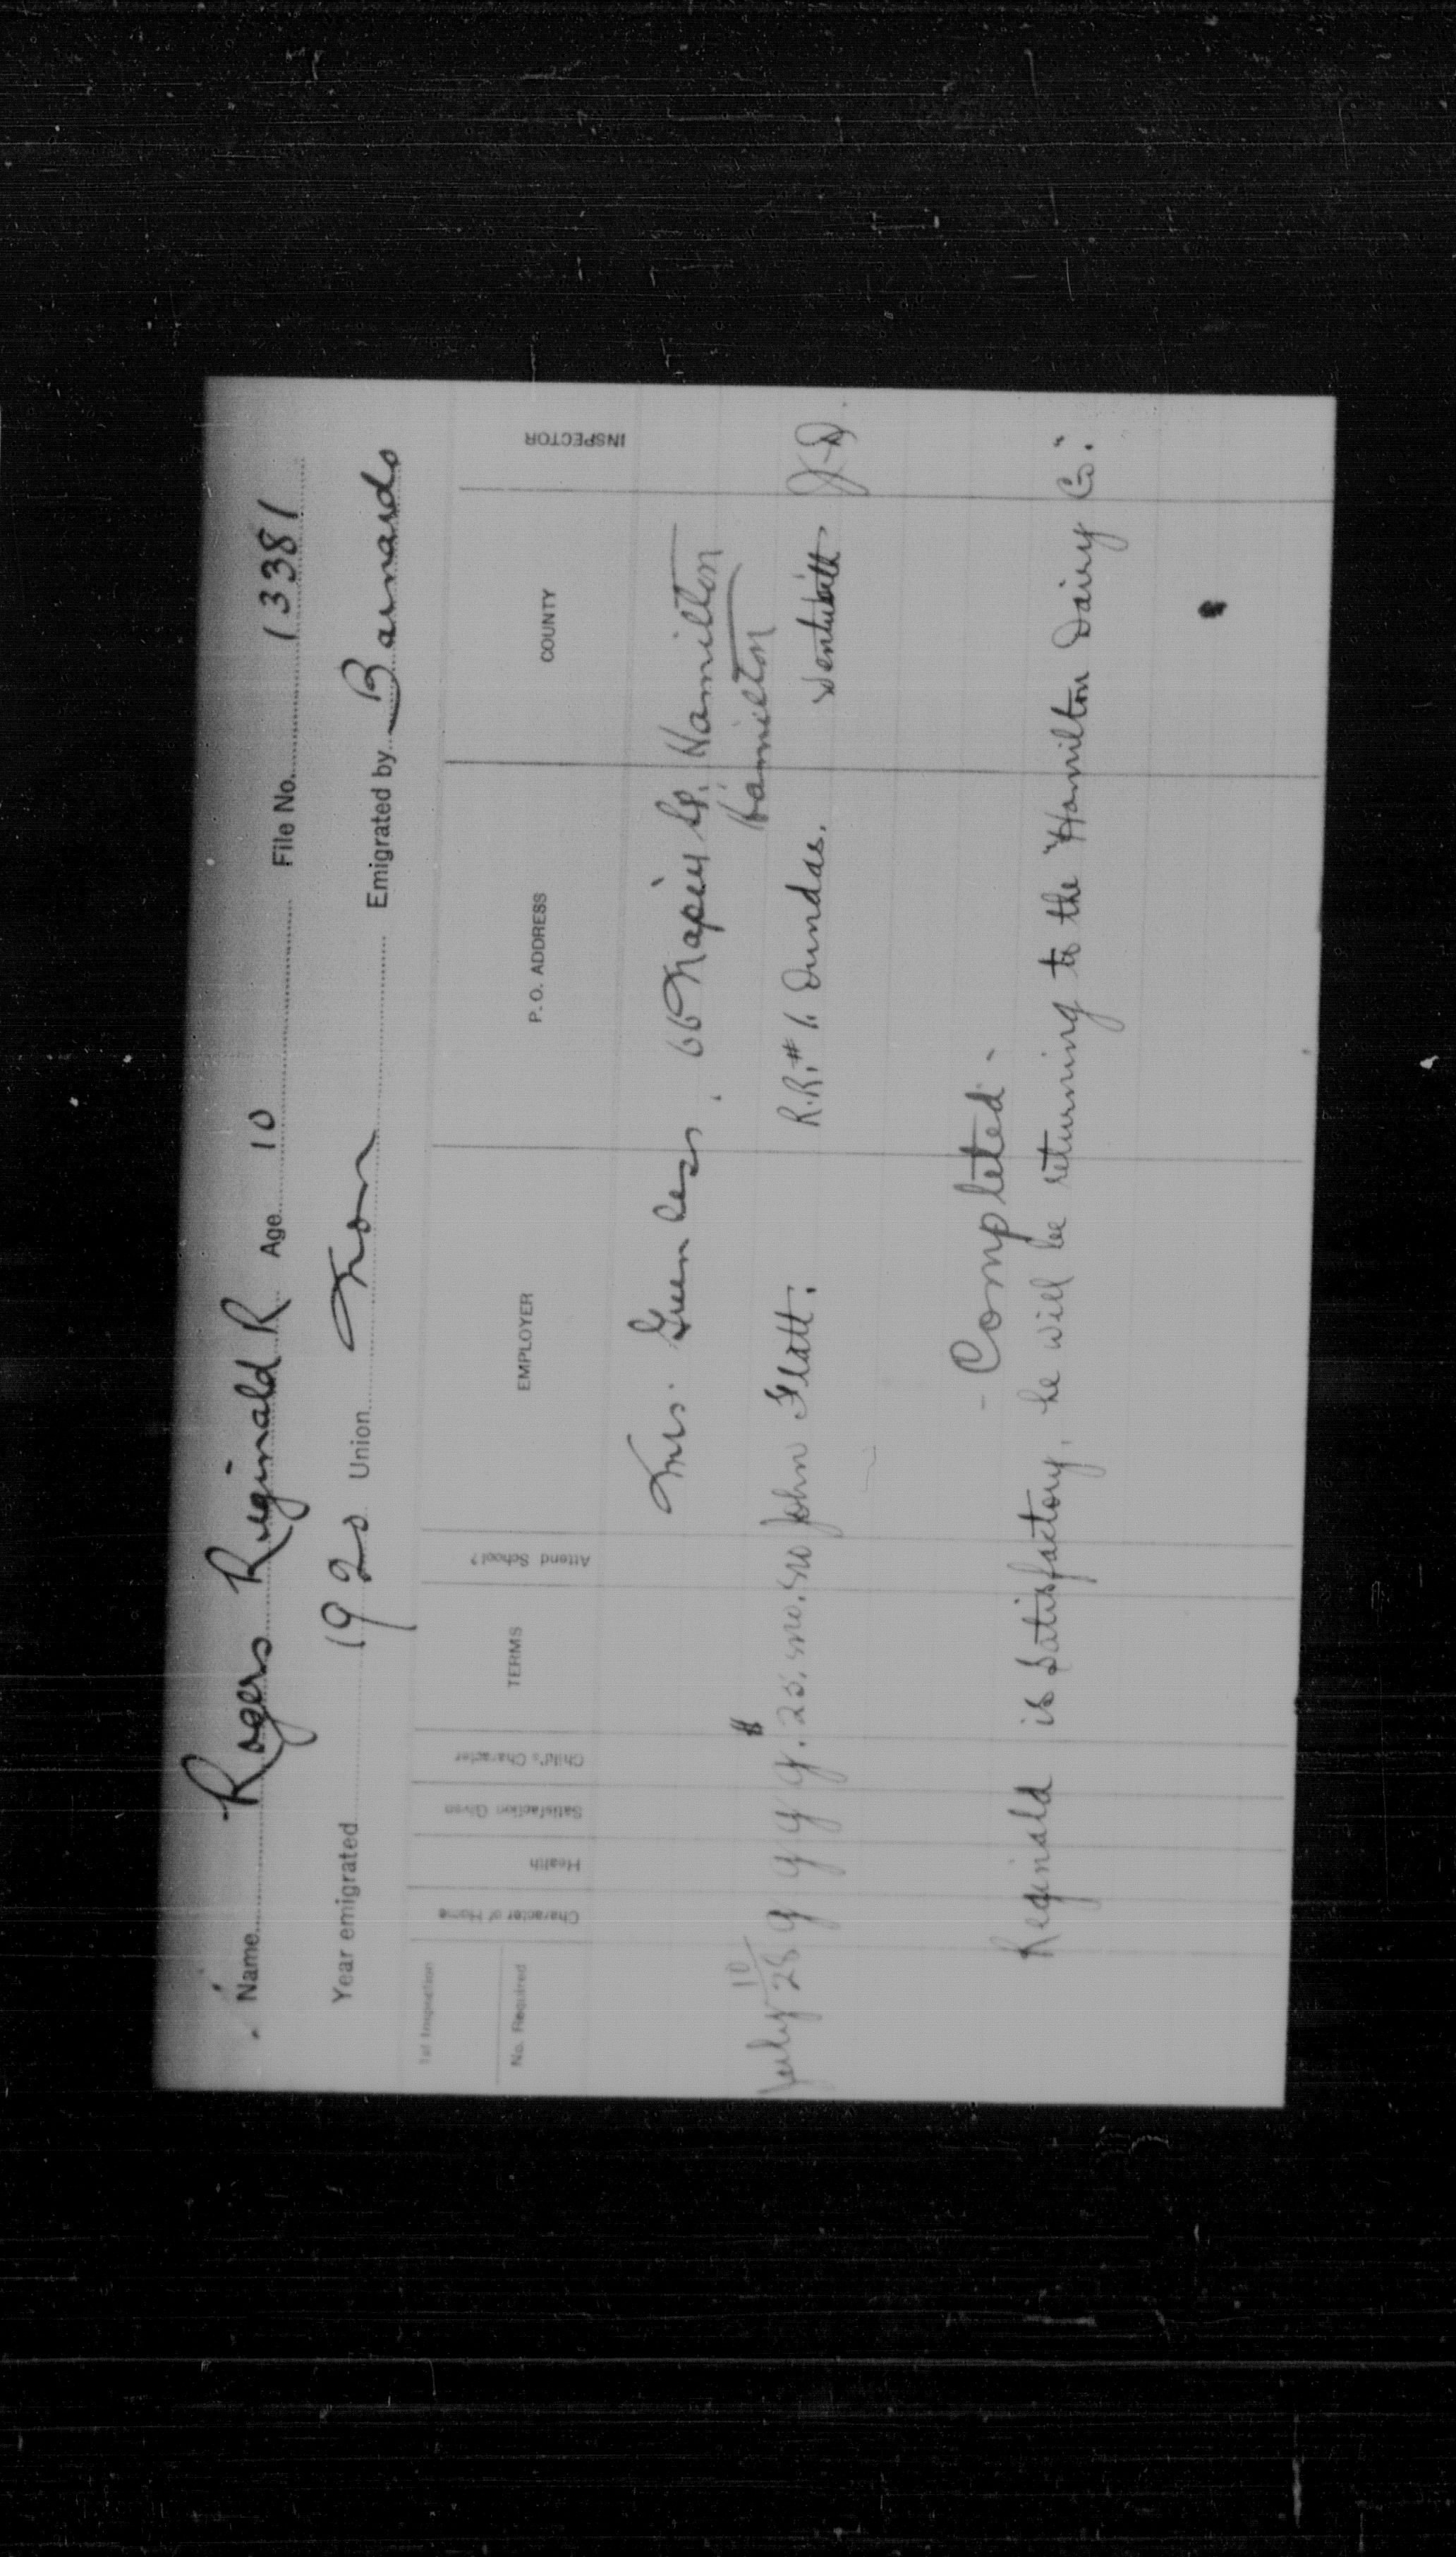 Name Rogers Reginald R Age 10 File No. 13381
Year emigrated 1920 Union Non Emigrated by Barnardo
1st Inspection
No. Required
Character of Home
Health
Satisfaction Given
Child's Character
TERMS
Attend School?
EMPLOYER
P. O. ADDRESS
COUNTY
INSPECTOR
Mrs. Greenlees, 66 Napier St. Hamilton
Hamilton
July 10/28 g g g g. $20. mo. no John Flatt. R.R. # 1. Dundas. Wentworth
- Completed. -
Reginald is satisfactory, he will be returning to the "Hamilton Dairy Co."